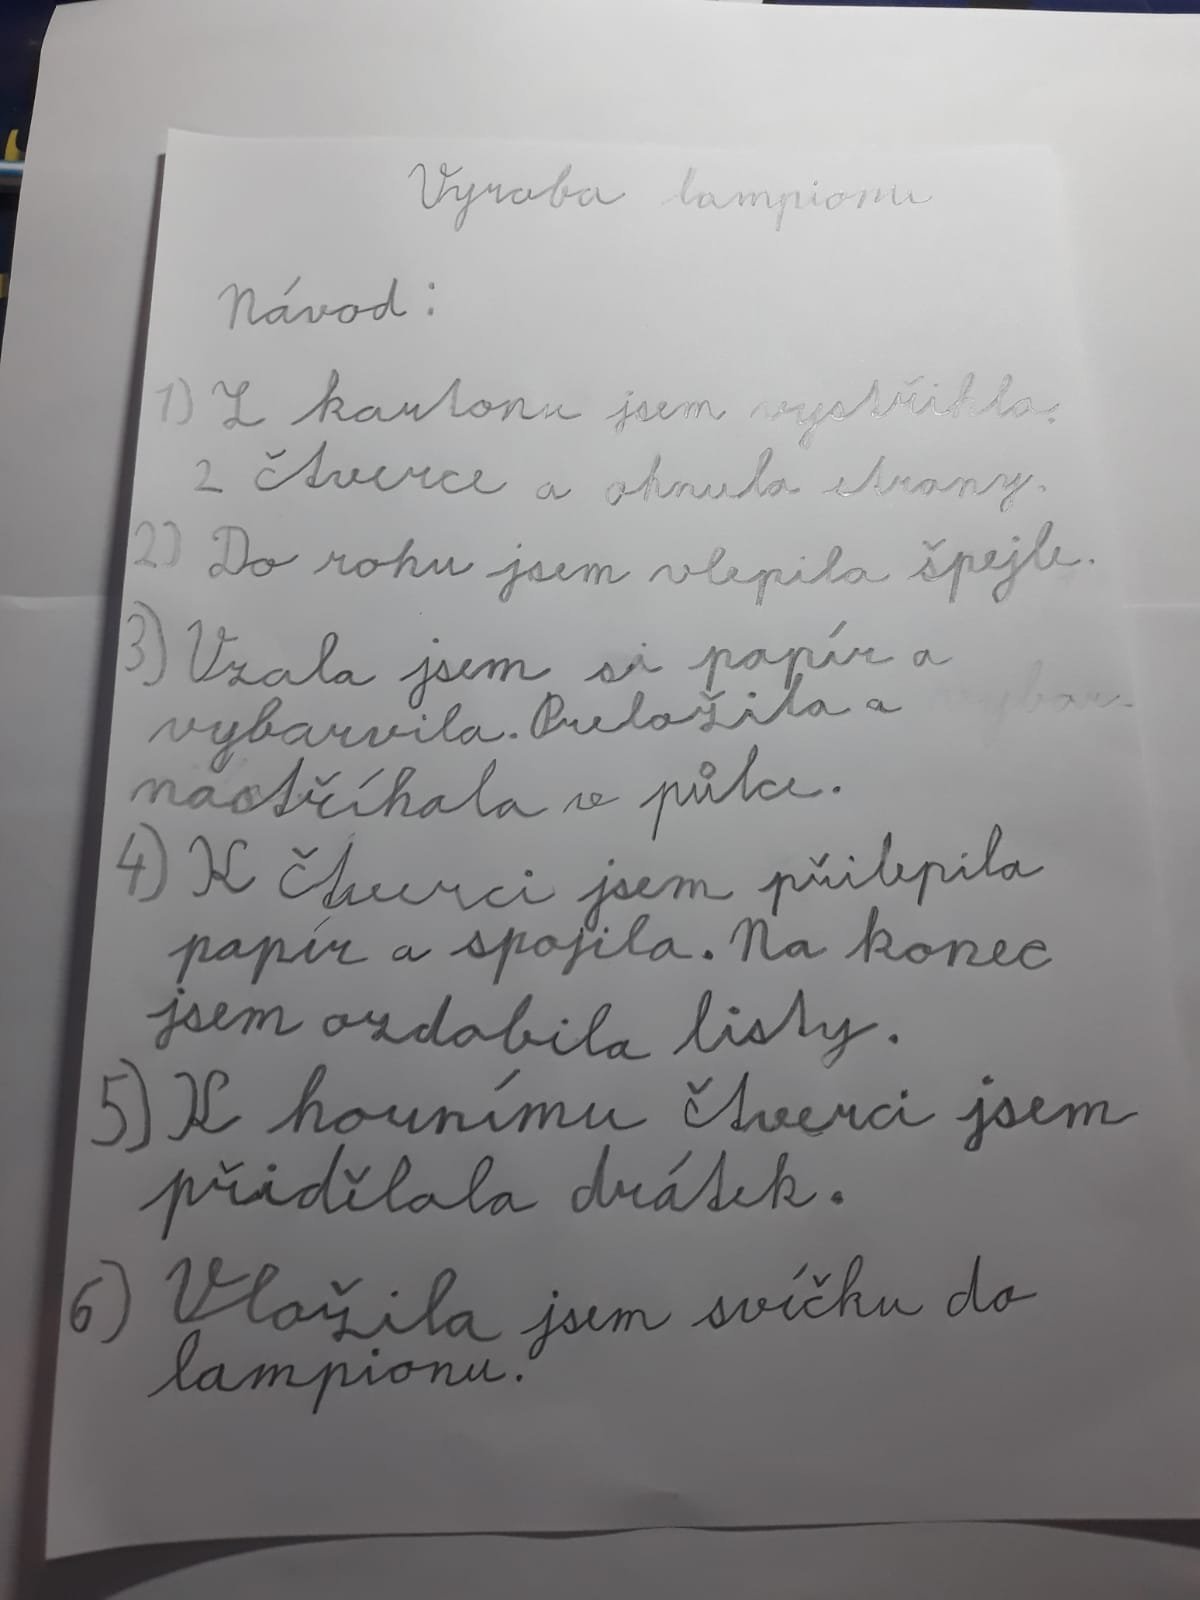 Vyroba lampionu
Návod:
1) Z kartonu jsem vystřihla
2 čtverce a ohnula strany.
2) Do rohu jsem vlepila špejle.
3) Vzala jsem si papír a
vybarvila. Preložila a
nastříhala v půlce.
4) K čtverci jsem přilepila
papír a spojila. Na konec
jsem ozdobila listy.
5) K hornímu čtverci jsem
přidělala drátek.
6) Vložila jsem svíčku do
lampionu.